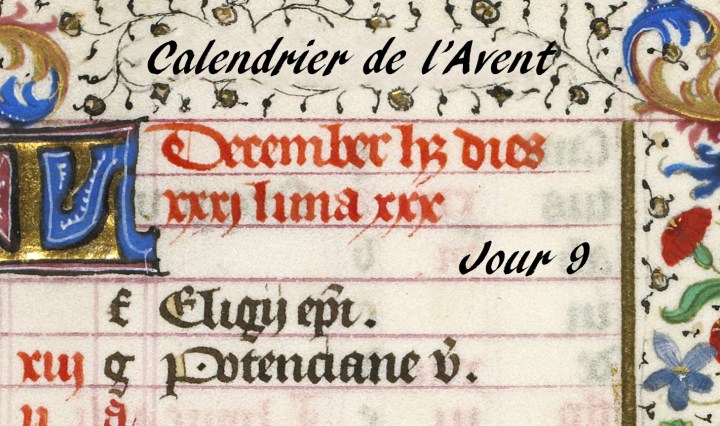 Calendrier de l'Avent
KL
December hꝫ dies
xxxj luna xxx
Jour 9
f Eligij ep̄i.
xiij g Potenciane v̄.
ij A